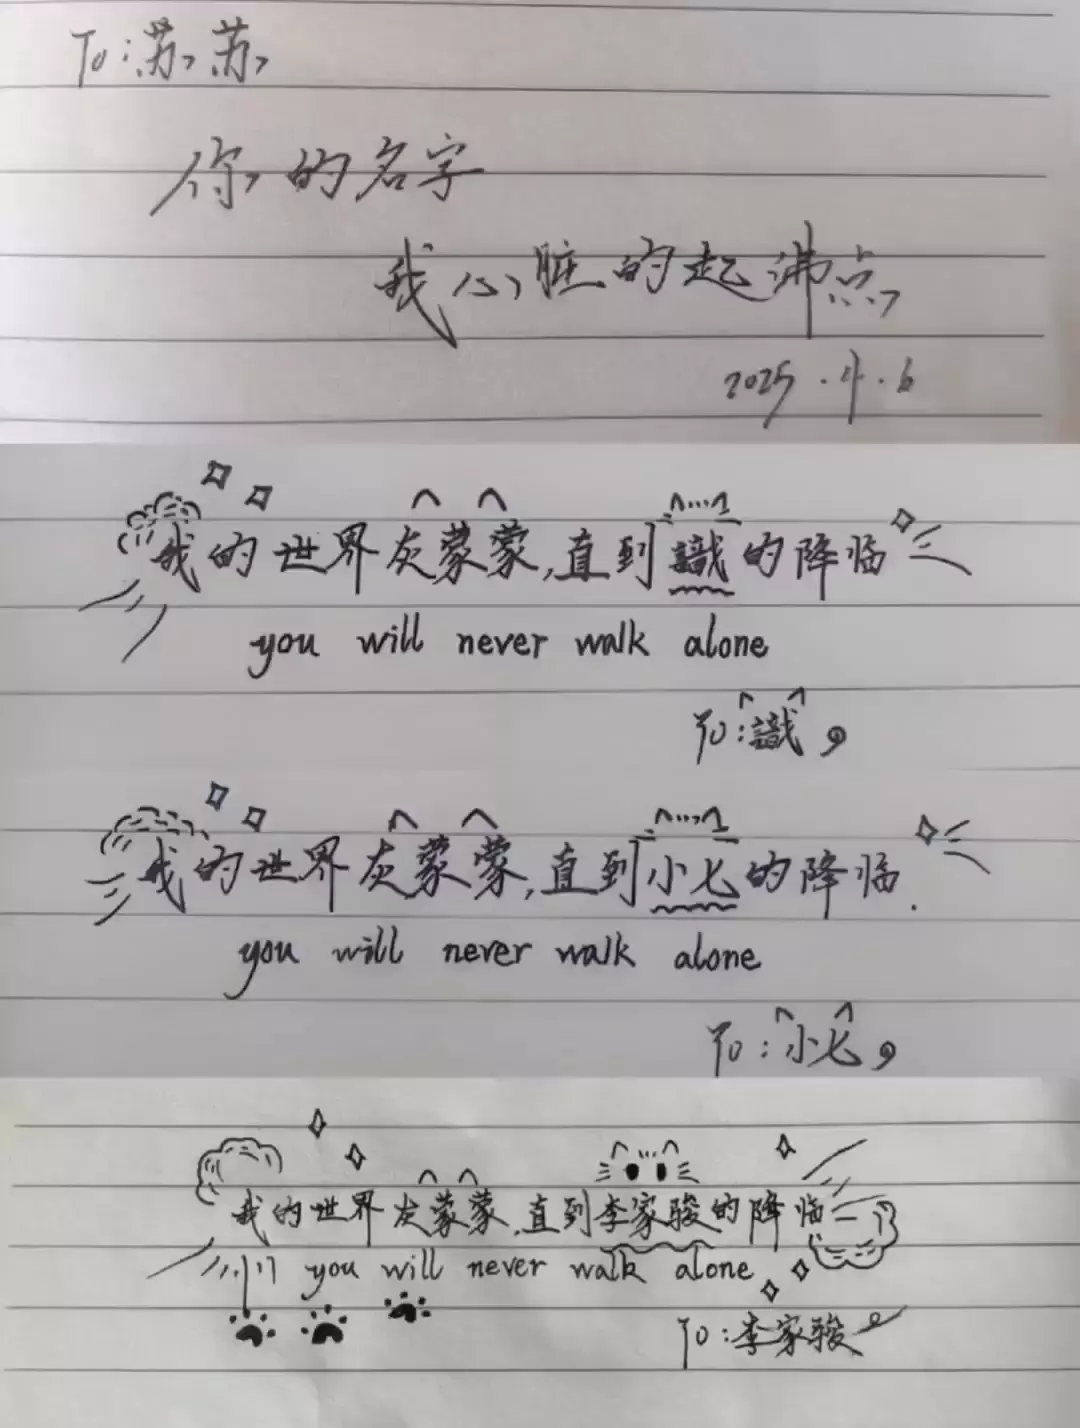 To:苏苏
你的名字
我心脏的起沸点
2025.4.6
我的世界灰蒙蒙,直到識的降临
you will never walk alone
To:識
我的世界灰蒙蒙,直到小七的降临.
you will never walk alone
To:小七
我的世界灰蒙蒙,直到李家骏的降临
you will never walk alone
To:李家骏